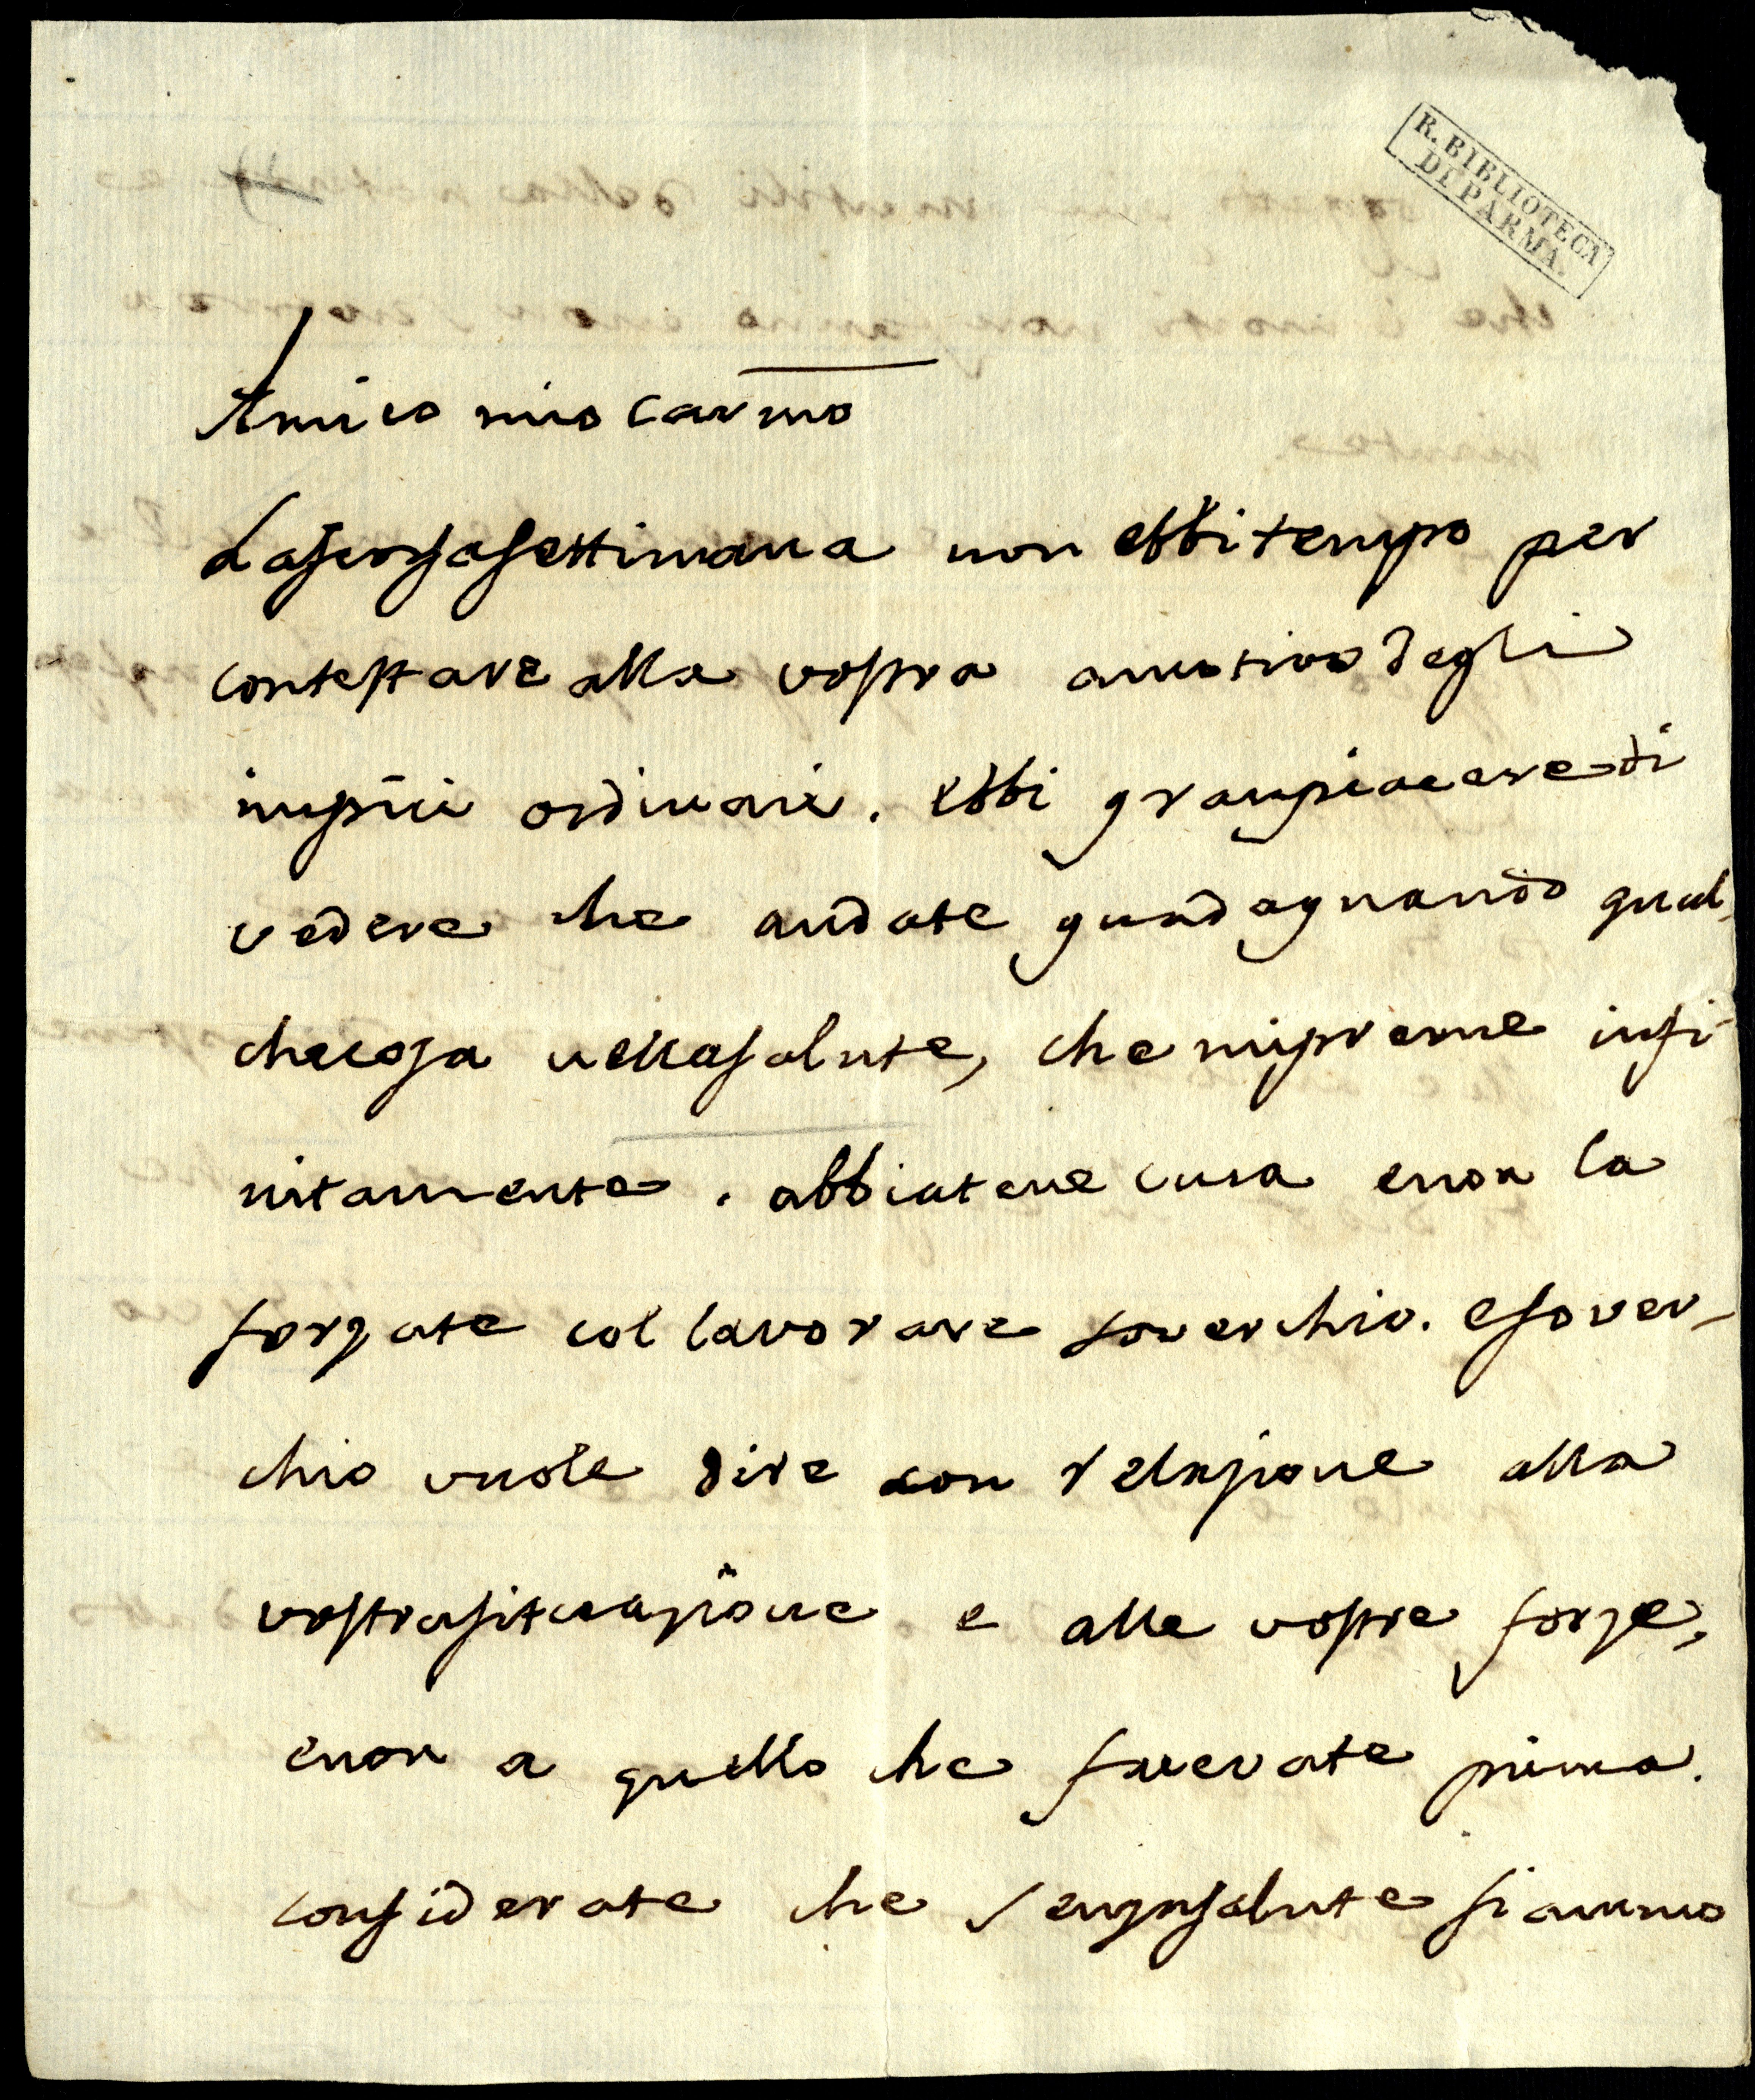 R. BIBLIOTECA
DI PARMA.
Amico mio carmo
La scorsa settimana non ebbi tempo per
contestare alla vostra a motivo degli
impicci ordinari. Ebbi gran piacere di
vedere che andate guadagnando qual-
che cosa nella salute, che mi preme infi-
nitamente. abbiatene cura e non la
forzate col lavorare soverchio. e sover-
chio vuole dire con relazione alla
vostra situazione e alle vostre forze,
e non a quello che facevate prima.
considerate che senza salute siammo